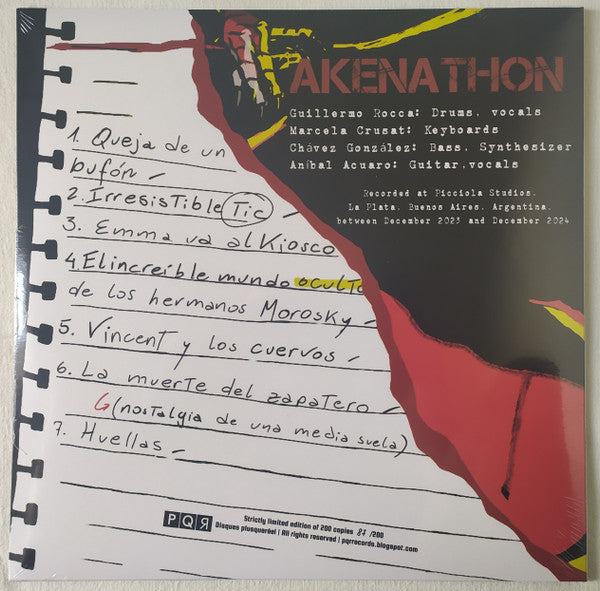 AKENATHON
Guillermo Rocca: Drums, vocals
Marcela Crusat: Keyboards
Chávez González: Bass, Synthesizer
Aníbal Acuaro: Guitar,vocals
Recorded at Picciola Studios.
La Plata. Buenos Aires. Argentina.
between December 2023 and December 2024
1. Queja de un
bufón
2. Irresistible Tic
3. Emma va al Kiosco
4. El increíble mundo oculto
de los hermanos Morosky
5. Vincent y los cuervos
6. La muerte del zapatero
(nostalgia de una media suela)
7. Huellas
PQR
Strictly limited edition of 200 copies 87 /200
Disques plusquéréel | All rights reserved | pqrrecords.blogspot.com